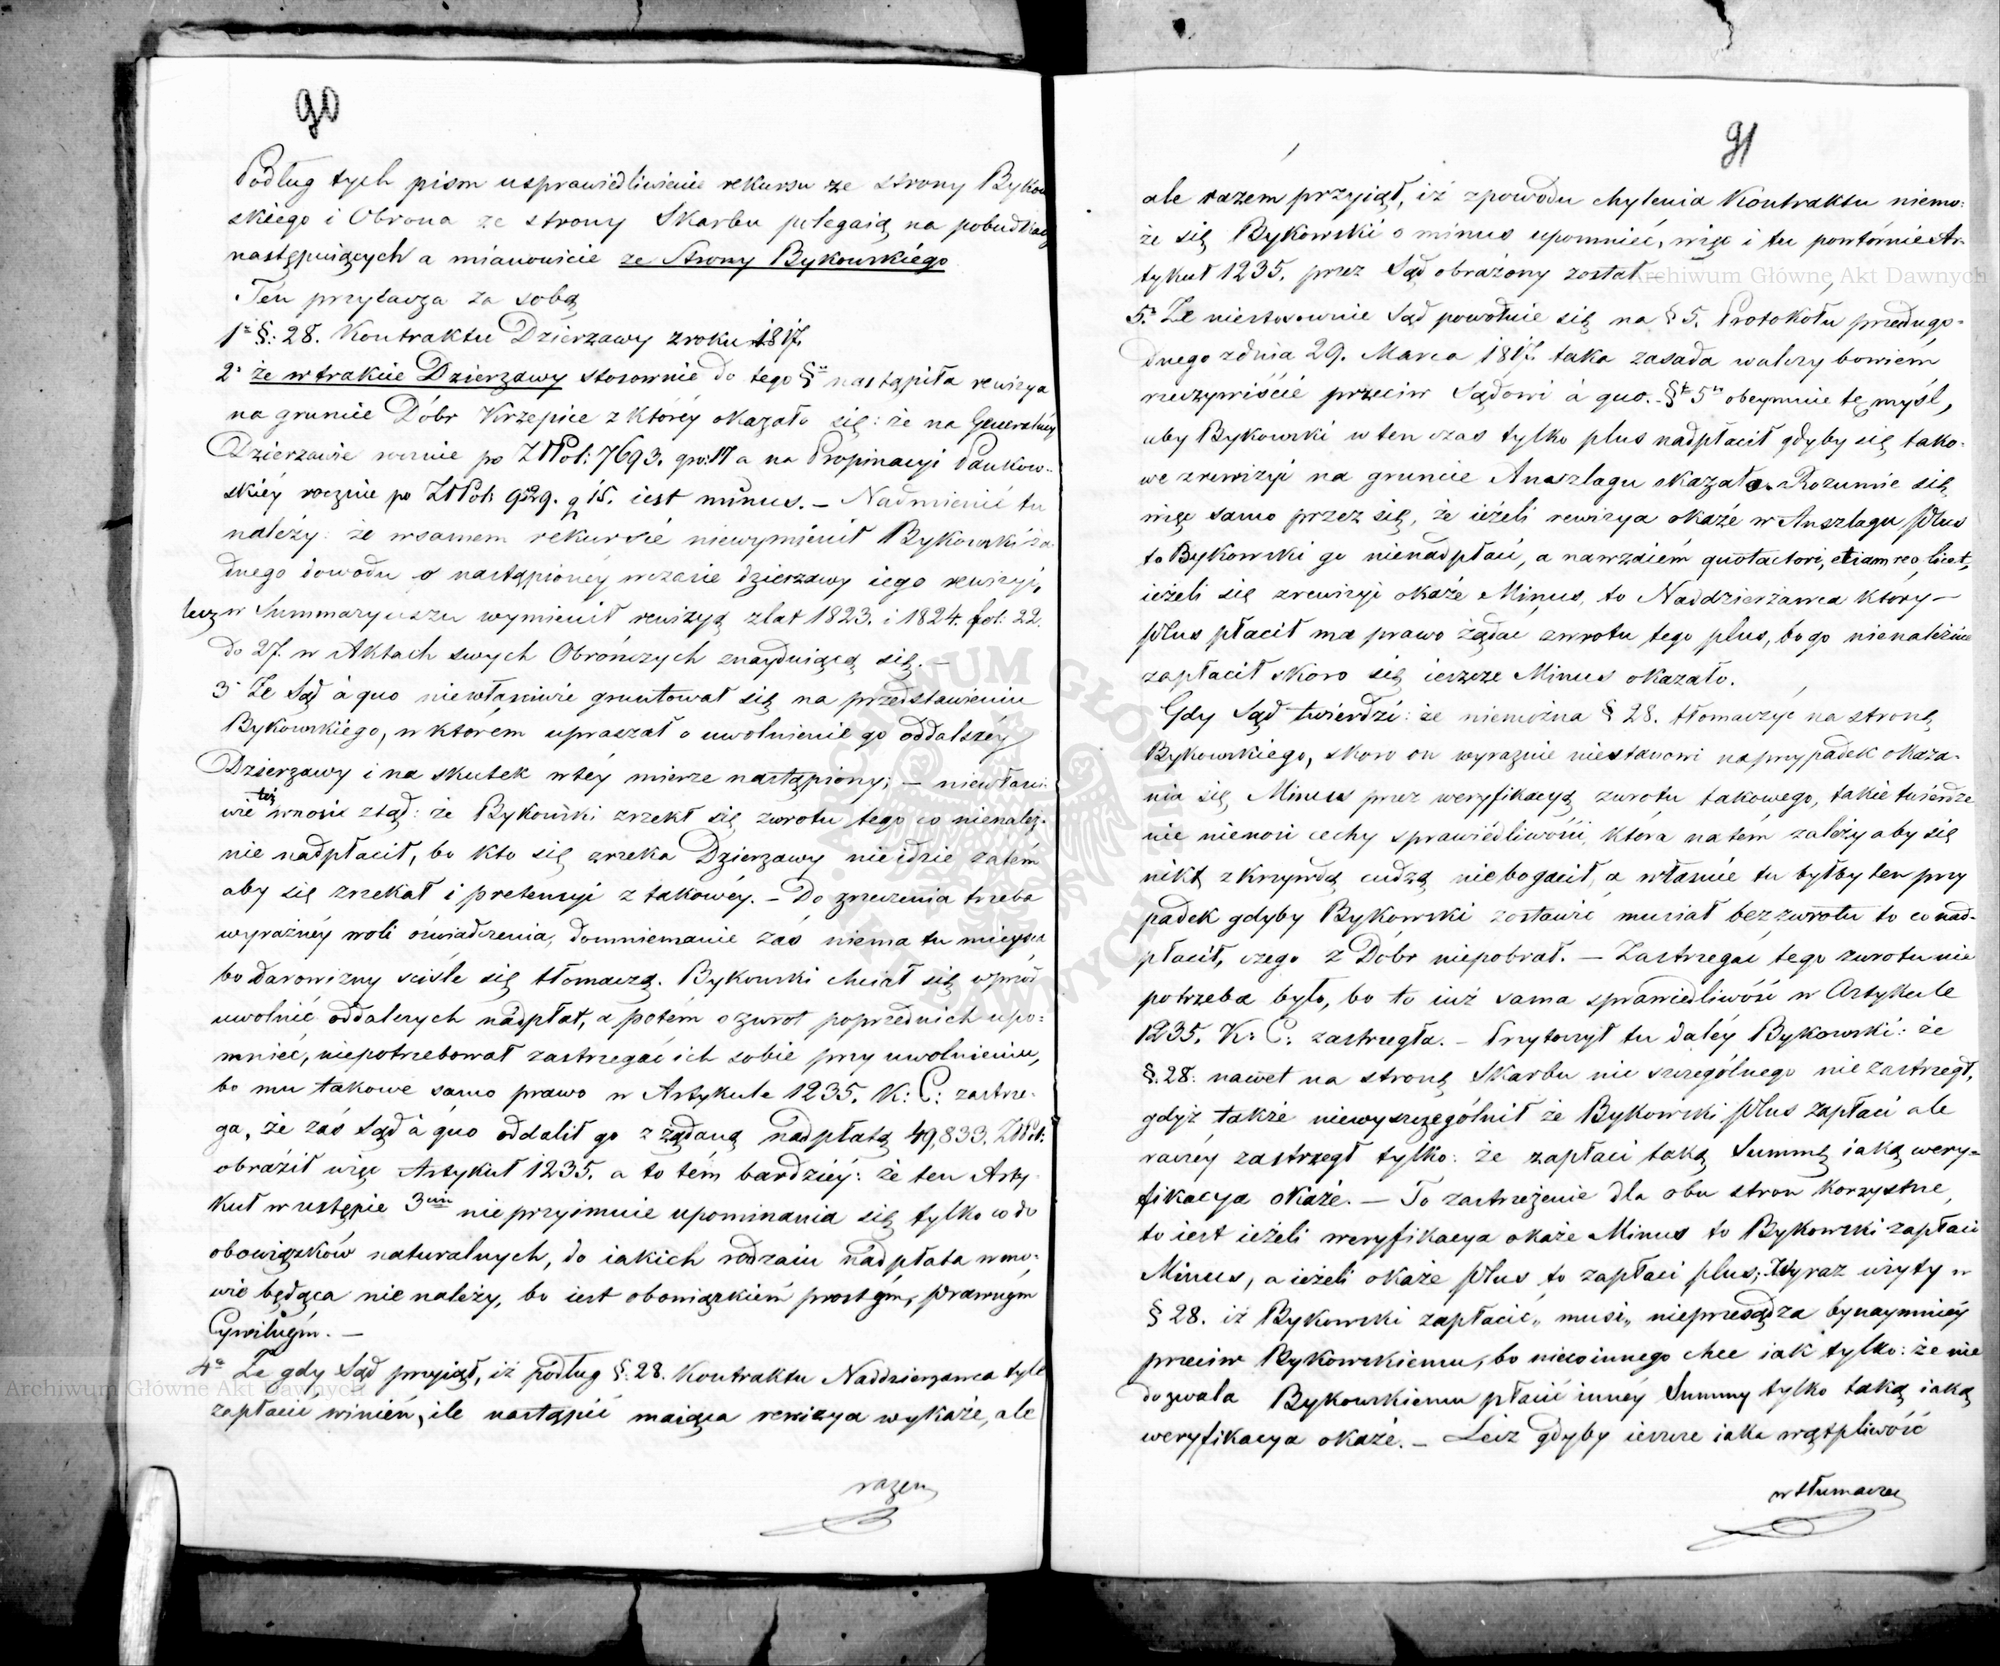 90
Podług tych pism usprawiedliwienie rekursu ze strony Bykow
skiego i Obrona ze strony Skarbu polegaią na pobudkach
następuiących a mianowicie ze Strony Bykowskiego
Ten przytacza za sobą
1º §: 28. Kontraktu Dzierzawy z roku 1817.
2º że w trakcie Dzierzawy stosownie do tego §u nastąpiła rewizya
na gruncie Dóbr Krzepice z któréy okazało się: że na Generalnéy
Dzierzawie rocznie po ZłPol: 7693. gr: 11 a na Propinacyi Pankow-
skiéy rocznie po ZłPol: 929. g 15. iest minus. – Nadmienić tu
należy: że w samem rekursie niewymienił Bykowski ża
dnego dowodu o nastąpionéy w czasie dzierzawy iego rewizyi,
lecz w Summaryuszu wymienił rewizyą z lat 1823. i 1824. fol: 22.
do 27. w Aktach swych Obrończych znayduiącą się. –
3º Że Sąd à quo niewłaściwie gruntował się na przedstawieniu
Bykowskiego, w którém upraszał o uwolnienie go od dalszéy
Dzierzawy i na skutek w téy mierze nastąpiony; – niewłaści
wie też wnosi ztąd: że Bykowski zrzekł się zwrotu tego co nienależ-
nie nadpłacił, bo kto się zrzeka Dzierzawy nie idzie zatém
aby się zrzekał i pretensyi z takowéy. – Do zrzeczenia trzeba
wyraźnéy woli oświadczenia, domniemanie zaś niema tu mieysca
bo darowizny ściśle się tłomaczą. Bykowski chciał się wprzód
uwolnić od dalszych nadpłat, a potém o zwrot poprzednich upo-
mnieć, niepotrzebował zastrzegać ich sobie przy uwolnieniu,
bo mu takowe samo prawo w Artykule 1235. K: C: zastrze-
ga, że zaś Sąd à quo oddalił go z żądaną nadpłatą 49,833. ZłPol:
obraził więc Artykuł 1235. a to tém bardziéy: że ten Arty-
kuł w ustępie 3cim nie przyimuie upominania się tylko co do
obowiązków naturalnych, do iakich rodzaiu nadpłata w mo-
wie będąca nie należy, bo iest obowiązkiém prostym, prawnym
Cywilnym. –
4º Że gdy Sąd przyiął, iż podług §: 28. Kontraktu Naddzierzawca tyle
zapłacić winién, ile nastąpić maiąca rewizya wykaże, ale
razem
91
ale razém przyiął, iż z powodu chylenia Kontraktu niemo-
że się Bykowski o minus upomnieć, więc i tu powtórnie Ar-
tykuł 1235. przez Sąd obrażony został
5º Że niestosownie Sąd powołuie się na § 5. Protokołu przedugo-
dnego z dnia 29. Marca 1817. taka zasada walczy bowiém
rzeczywiście przeciw Sądowi à quo. – § 5 obeymuie tę myśl,
aby Bykowski w ten czas tylko plus nadpłacił gdyby się tako-
we z rewizyi na gruncie Anszlagu okazało. Rozumie się
więc samo przez się, że ieżeli rewizya okaże w Anszlagu Plus
to Bykowski go nienadpłaci, a nawzaiém quot actori, etiam reo licet,
ieżeli się z rewizyi okaże Minus, to Naddzierżawca który –
Plus płacił ma prawo żądać zwrotu tego plus, bo go nienależnie
zapłacił skoro się ieszcze Minus okazało.
Gdy Sąd twierdzi: że niemożna § 28. tłomaczyć na stronę
Bykowskiego, skoro on wyraźnie niestanowi na przypadek okaza-
nia się Minus przez weryfikacyą zwrotu takowego, takie twierdze
nie nienosi cechy sprawiedliwości, która na tém zależy aby się
nikt z krzywdą cudzą niebogacił, a właśnie tu byłby ten przy
padek gdyby Bykowski zostawić musiał bez zwrotu to co nad-
płacił, czego z Dóbr niepobrał. – Zastrzegać tego zwrotu nie
potrzeba było, bo to iuż sama sprawiedliwość w Artykule
1235. K: C: zastrzegła. – Przytoczył tu daléy Bykowski: że
§. 28. nawet na stronę Skarbu nic szczególnego nie zastrzegł,
gdyż także niewyszczególnił że Bykowski Plus zapłaci ale
raczéy zastrzegł tylko: że zapłaci taką Summę iaką wery-
fikacya okaże. – To zastrzeżenie dla obu stron korzystne,
to iest ieżeli weryfikacya okaże Minus to Bykowski zapłaci
Minus, a ieżeli okaże Plus to zapłaci plus; Wyraz użyty w
§ 28. iż Bykowski zapłacić „ musi „ nieprzesądza bynaymniéy
przeciw Bykowskiemu, bo nic innego chce iak tylko: że nie
dozwala Bykowskiemu płacić innéy Summy tylko taką iaką
weryfikacya okaże. – Lecz gdyby ieszcze iaka wątpliwość
w tłumacze
Archiwum Główne Akt Dawnych
Archiwum Główne Akt Dawnych
ARCHIWUM GŁÓWNE AKT DAWNYCH